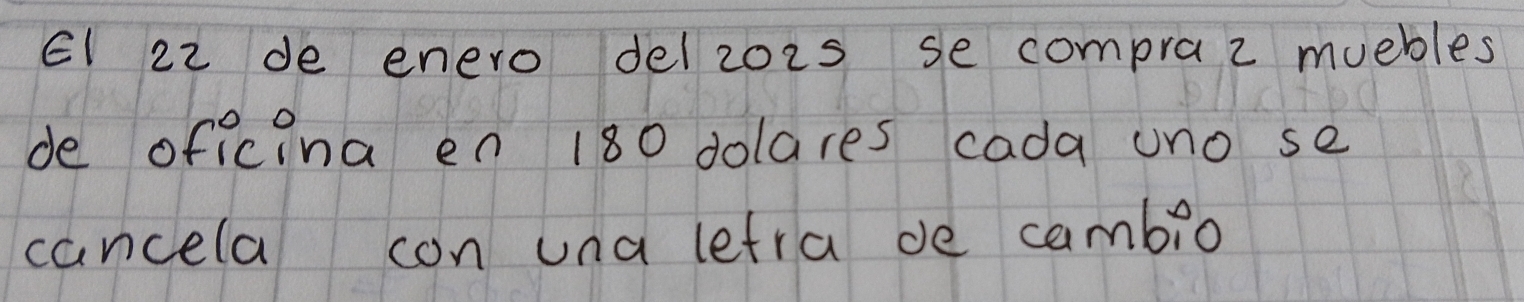 El 22 de enero del 2025 se compra 2 muebles
de oficina en 180 dolares cada uno se
cancela con una letra de cambio